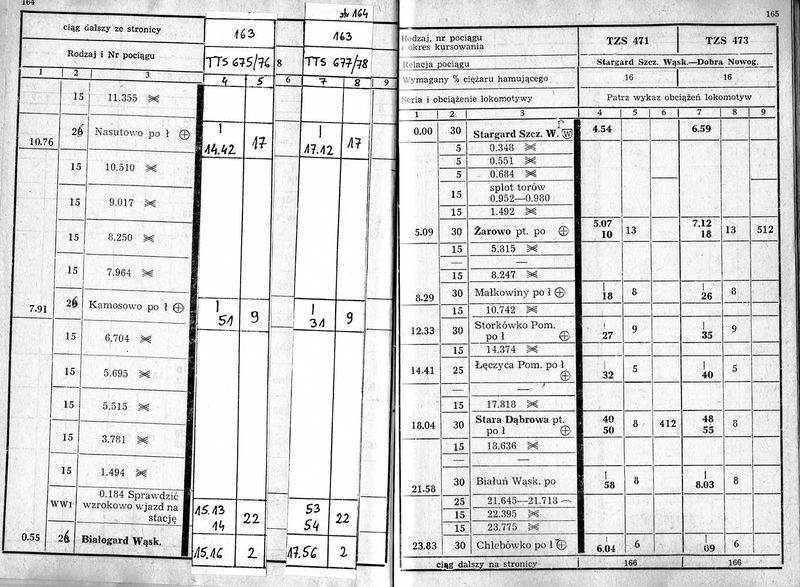 164
ciąg dalszy ze stronicy
163
str 164
163
Rodzaj i Nr pociągu
TTS 675/76
8
TTS 677/78
1 2 3 4 5 6 7 8 9
15 11.355
10.76 26 Nasutowo po ł
|
14.42 17
|
17.12 17
15 10.510
15 9.017
15 8.250
15 7.964
7.91 26 Kamosowo po ł
|
51 9
|
31 9
15 6.704
15 5.695
15 5.515
15 3.781
15 1.494
WW1 0.184 Sprawdzić
wzrokowo wjazd na
stację
15.13
14 22
53
54 22
0.55 26 Białogard Wąsk.
15.16 2 17.56 2
165
Rodzaj, nr pociągu
i okres kursowania
TZS 471 TZS 473
Relacja pociągu Stargard Szcz. Wąsk.—Dobra Nowog.
Wymagany % ciężaru hamującego 16 16
Seria i obciążenie lokomotywy Patrz wykaz obciążeń lokomotyw
1 2 3 4 5 6 7 8 9
0.00 30 Stargard Szcz. W. W 4.54 6.59
5 0.348
5 0.551
5 0.684
15 splot torów
0.952—0.980
15 1.492
5.09 30 Żarowo pt. po
5.07
10 13
7.12
18 13 512
15 5.815
— —
15 8.247
8.29 30 Małkowiny po ł
|
18 8
|
26 8
15 10.742
12.33 30 Storkówko Pom.
po ł
|
27 9
|
35 9
15 14.374
14.41 25 Łęczyca Pom. po ł
|
32 5
|
40 5
— —
15 17.818
18.04 30 Stara Dąbrowa pt.
po ł
40
50 8 412
48
55 8
15 18.636
— —
21.58 30 Białuń Wąsk. po
|
58 8
|
8.03 8
25 21.645—21.718
15 22.395
15 23.775
23.83 30 Chlebówko po ł
|
6.04 6
|
09 6
ciąg dalszy na stronicy 166 166